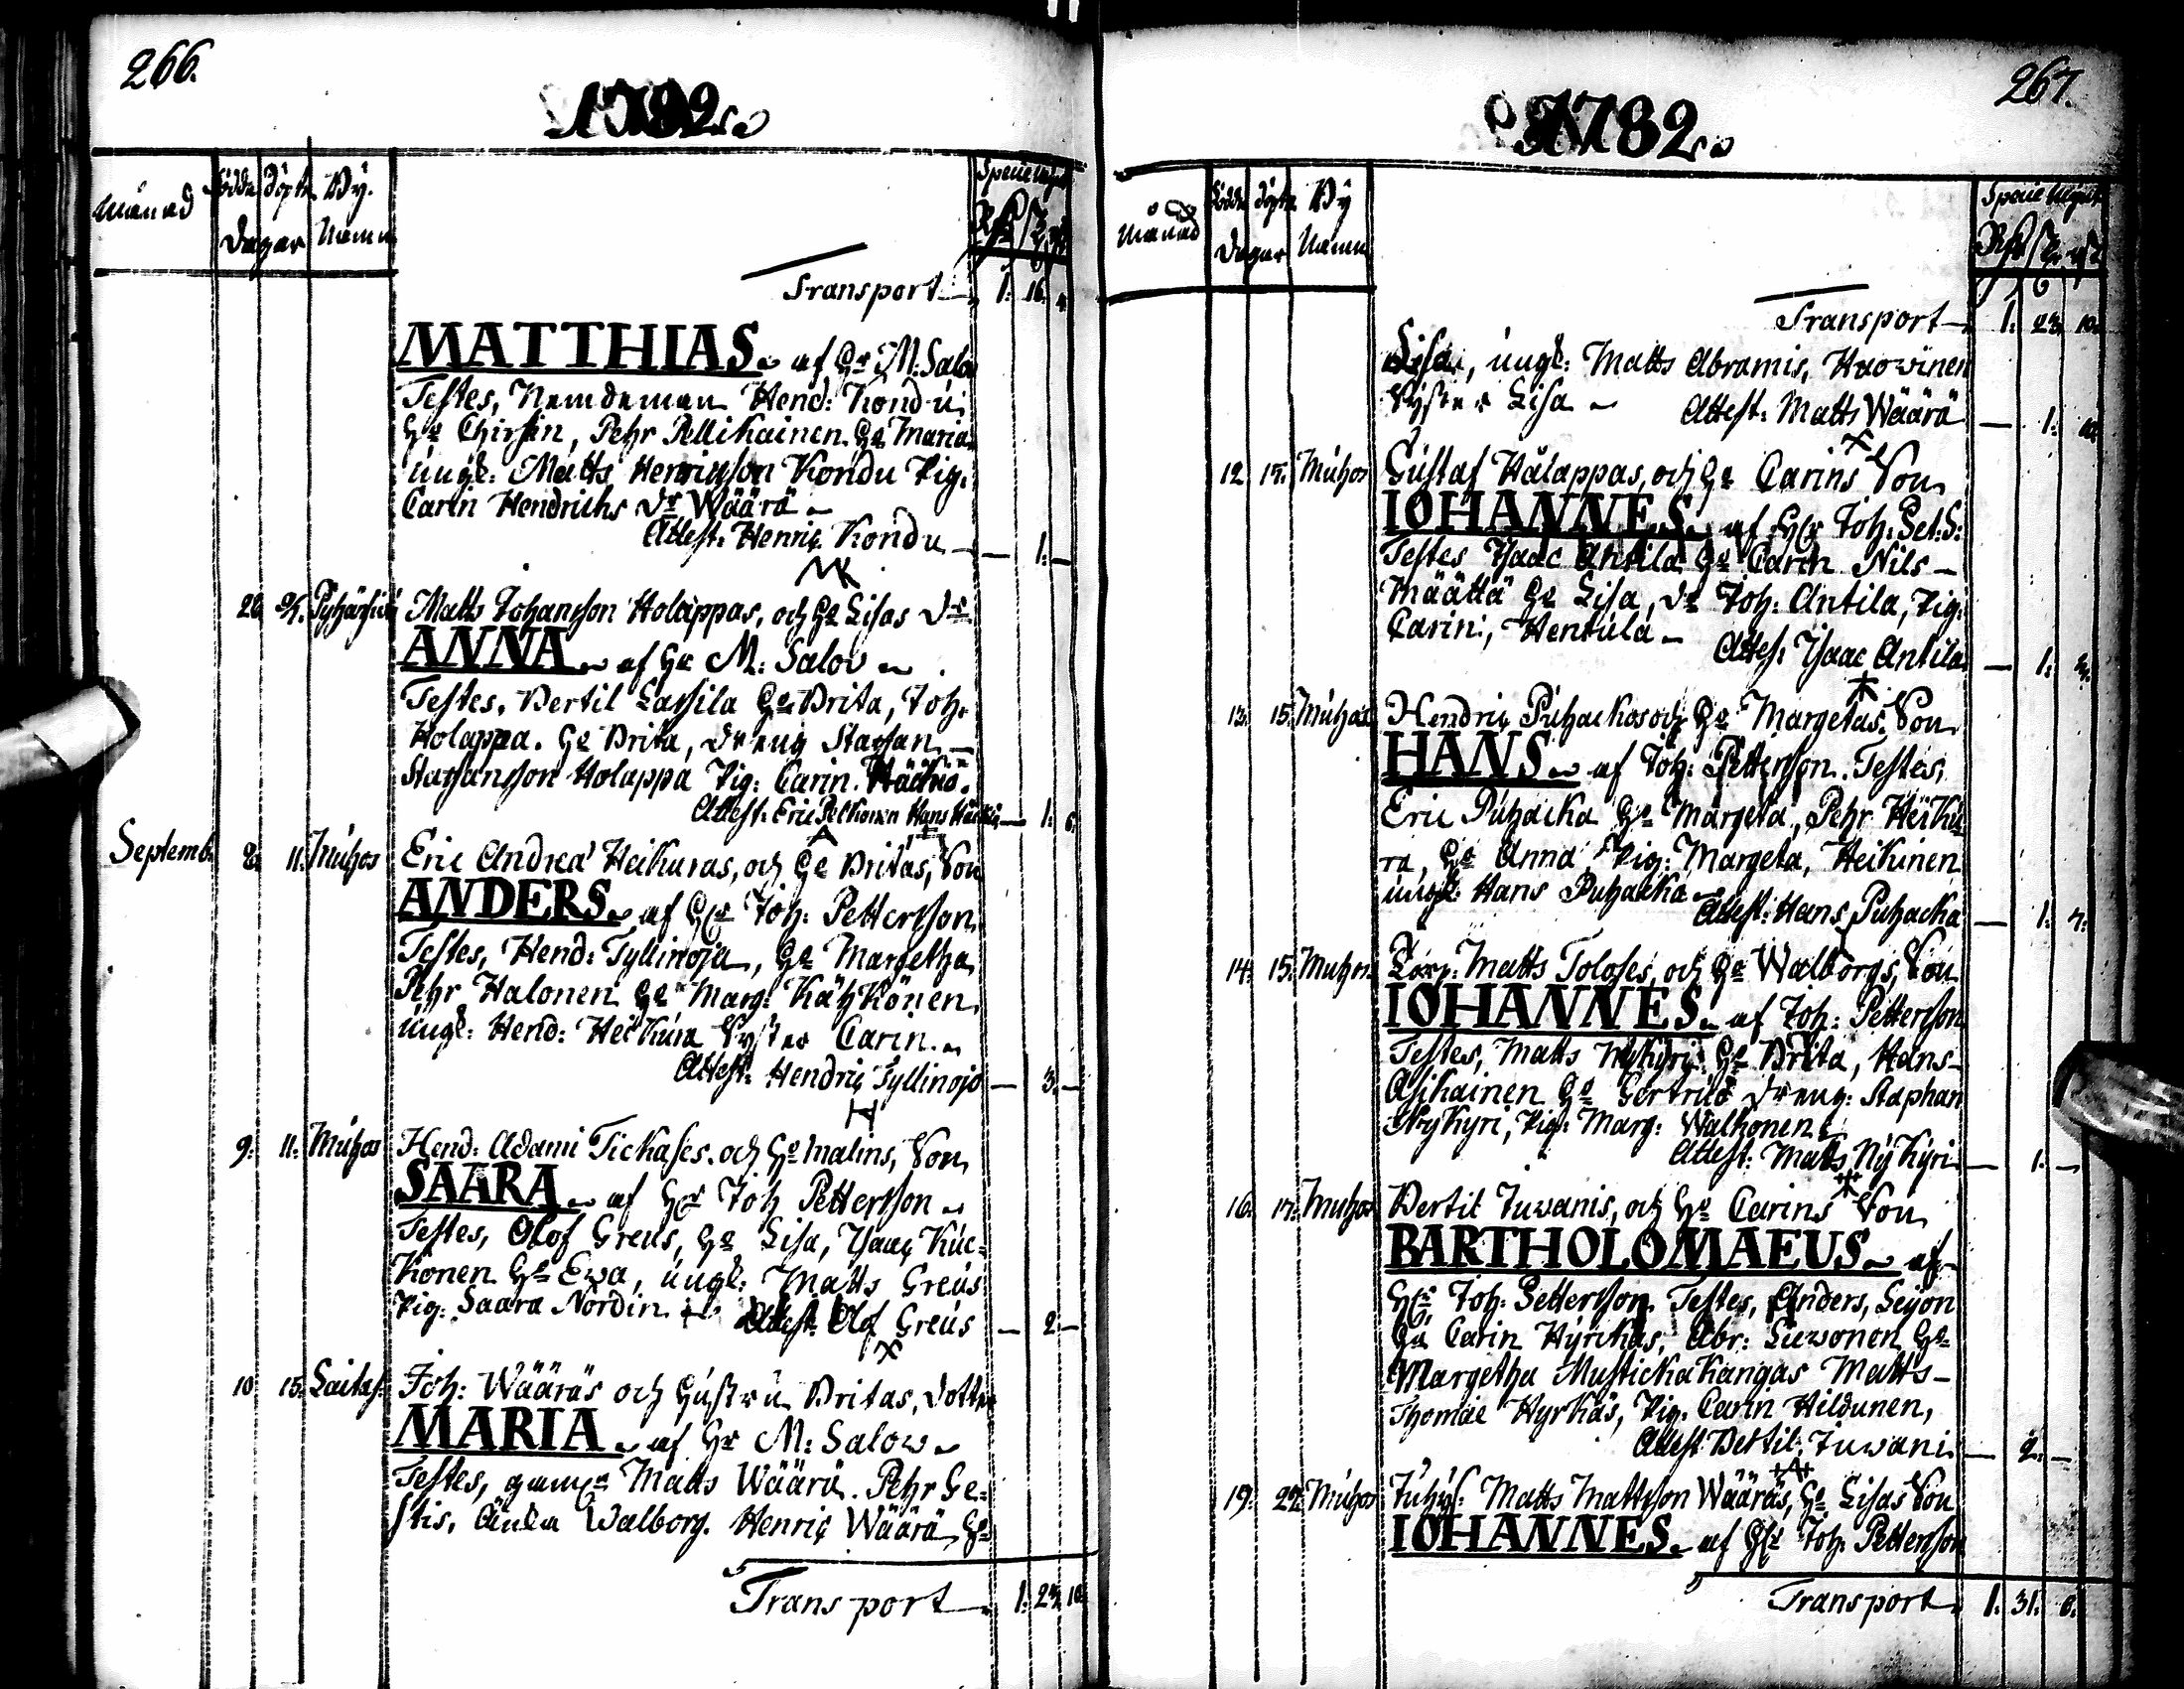 266.
1782.
Månad
Födde
Döpte
By.
Dagar
Namn
Specie
Transport 1. 16. 4.
MATTHIAS af Hr M: Salov
Testes, Nemdeman Hend: Kondu
Ho Chirstin, Pehr Pellikainen Ho Maria
ungk: Matts Henricsson Kondu Pig:
Carin Hendrichs Dr Wäärä
Attest. Henric Kondu — 1. —
28. Matts Johansson Holappas, och Ho Lisas Dr
ANNA af Hr M: Salov
Testes. Bertil Lassila Ho Brita, Joh.
Holappa. Ho Brita, dreng Staffan
Staffansson Holappa Pig: Carin.
Attest: Eric Pelkonen Hans — 1. 6.
Septemb. 8. 11. Muhos Eric Andreæ Heikuras, och Ho Britas, Son
ANDERS af Hr Joh: Pettersson
Testes, Hend: Tyllinoja, Ho Margetha
Pehr Halonen Ho Marg: Kähkönen
ungk: Hend: Heikura Syster Carin.
Attest. Hendric Tyllinoja — 3. —
9. 11. Muhos Hend: Adami Tickases. och Ho Malins, Son
SAARA af Hr Joh Pettersson
Testes, Olof Greus, Ho Lisa, Isaac Kuc-
konen Ho Ewa, ungk: Matts Greus
Pig: Saara Nordin Attest: Olof Greus — 2. —
10. 15. Laitas. Joh: Wääräs och Hustru Britas, Dotter
MARIA af Hr M: Salow
Testes, Matts Wäärä. Pehr Ge-
stis, Änka Walborg. Henric Wäärä, Ho
Transport 1. 23. 10.
267.
1782.
Månad
Födde
Döpte
By
Dagar
Namn
Specie
Transport 1. 23. 10.
Lisa, ungk: Matts Abramis, Haowinen
Syster Lisa Attest: Matts Wäärä — 1. 10.
12. 15. Muhos Gustaf Hålappas, och Ho Carins Son
IOHANNES af Hr Joh: Pet: S:
Testes Isaac Antila Ho Carin Nils
Määttä Ho Lisa, Dr Joh: Antila, Pig:
Carin, Hentula Attes: Isaac Antila — 1.
13. 15. Muhos Hendric Puhackas och Ho Margetas. Son
HANS af Joh: Pettersson. Testes,
Eric Puhacka Ho Margeta, Pehr Heiku
ra, Ho Anna Pig: Margeta, Heikinen
ungk: Hans Puhacka Attest: Hans Puhacka — 1.
14. 15. Muhos Torp: Matts Toloses, och Ho Walborgs, Son
IOHANNES af Joh: Pettersson
Testes, Matts Nykyri Ho Brita, Hans
Asikainen Ho Gertrud dreng: Staphan
Nykyri, Pig: Marg: Walkonen
Attest: Matts Nykyri — 1. —
16. 17. Muhos Bertil Juwanis, och Ho Carins Son
BARTHOLOMAEUS af
Hr Joh: Pettersson. Testes, Anders, Leijon
Ho Carin Hyrckäs, Abr: Luwonen Ho
Margetha Mustickakangas Matts
Thomae Hyrkäs, Pig. Carin Hildunen,
Attest Bertil Juwani — 2. —
19. 22. Muhos Matts Mattsson Wääräs, Ho Lisas Son
IOHANNES af Hr Joh. Pettersson
Transport 1. 31. 6.